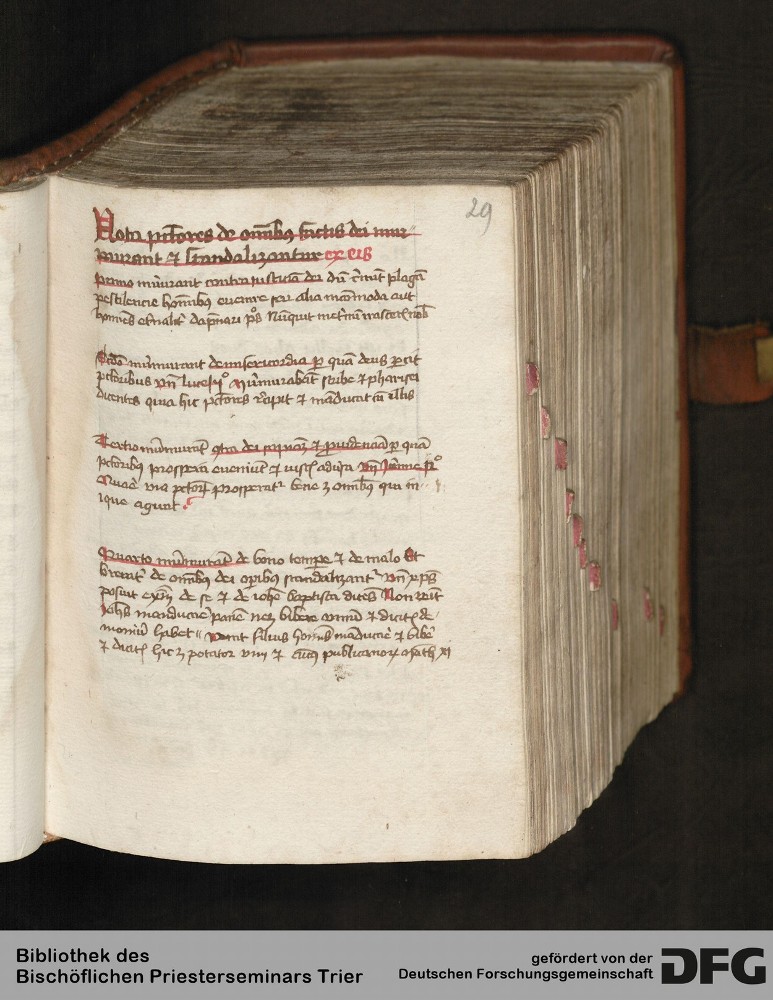 29
Nota pctores de omibus factis dei mur-
murant et scandalizantur ex eis
Primo murmurant contra iusticiam dei dum plagam
pestilencie hominibus euenire seu alia incommoda aut
homines
Scdo murmurant de misericordia per quam deus parcit
pctoribus vn luce murmurabant scribe et pharisei
dicentes quia hic pctores recipit et manducat cum illis
Tertio murmurant contra dei et prouidenciam per quam
pctoribus prospera eueniunt et iustis aduersa vn
Quare via prosperatur bene est omnibus qui in-
ique agunt
Quarto murmurant de bono tempore et de malo Et
breuiter de omibus dei operibus scandalizantur vn xps
posuit exm de se et de iohe baptista dicens Non venit
iohes manducans panem neque bibens vinum et dicitis de-
monium habet venit filius hominis manducans et bibens
et dicitis hic est potator vini et publicanorum math xi
Bibliothek des
Bischöflichen Priesterseminars Trier
gefördert von der
Deutschen Forschungsgemeinschaft
DFG